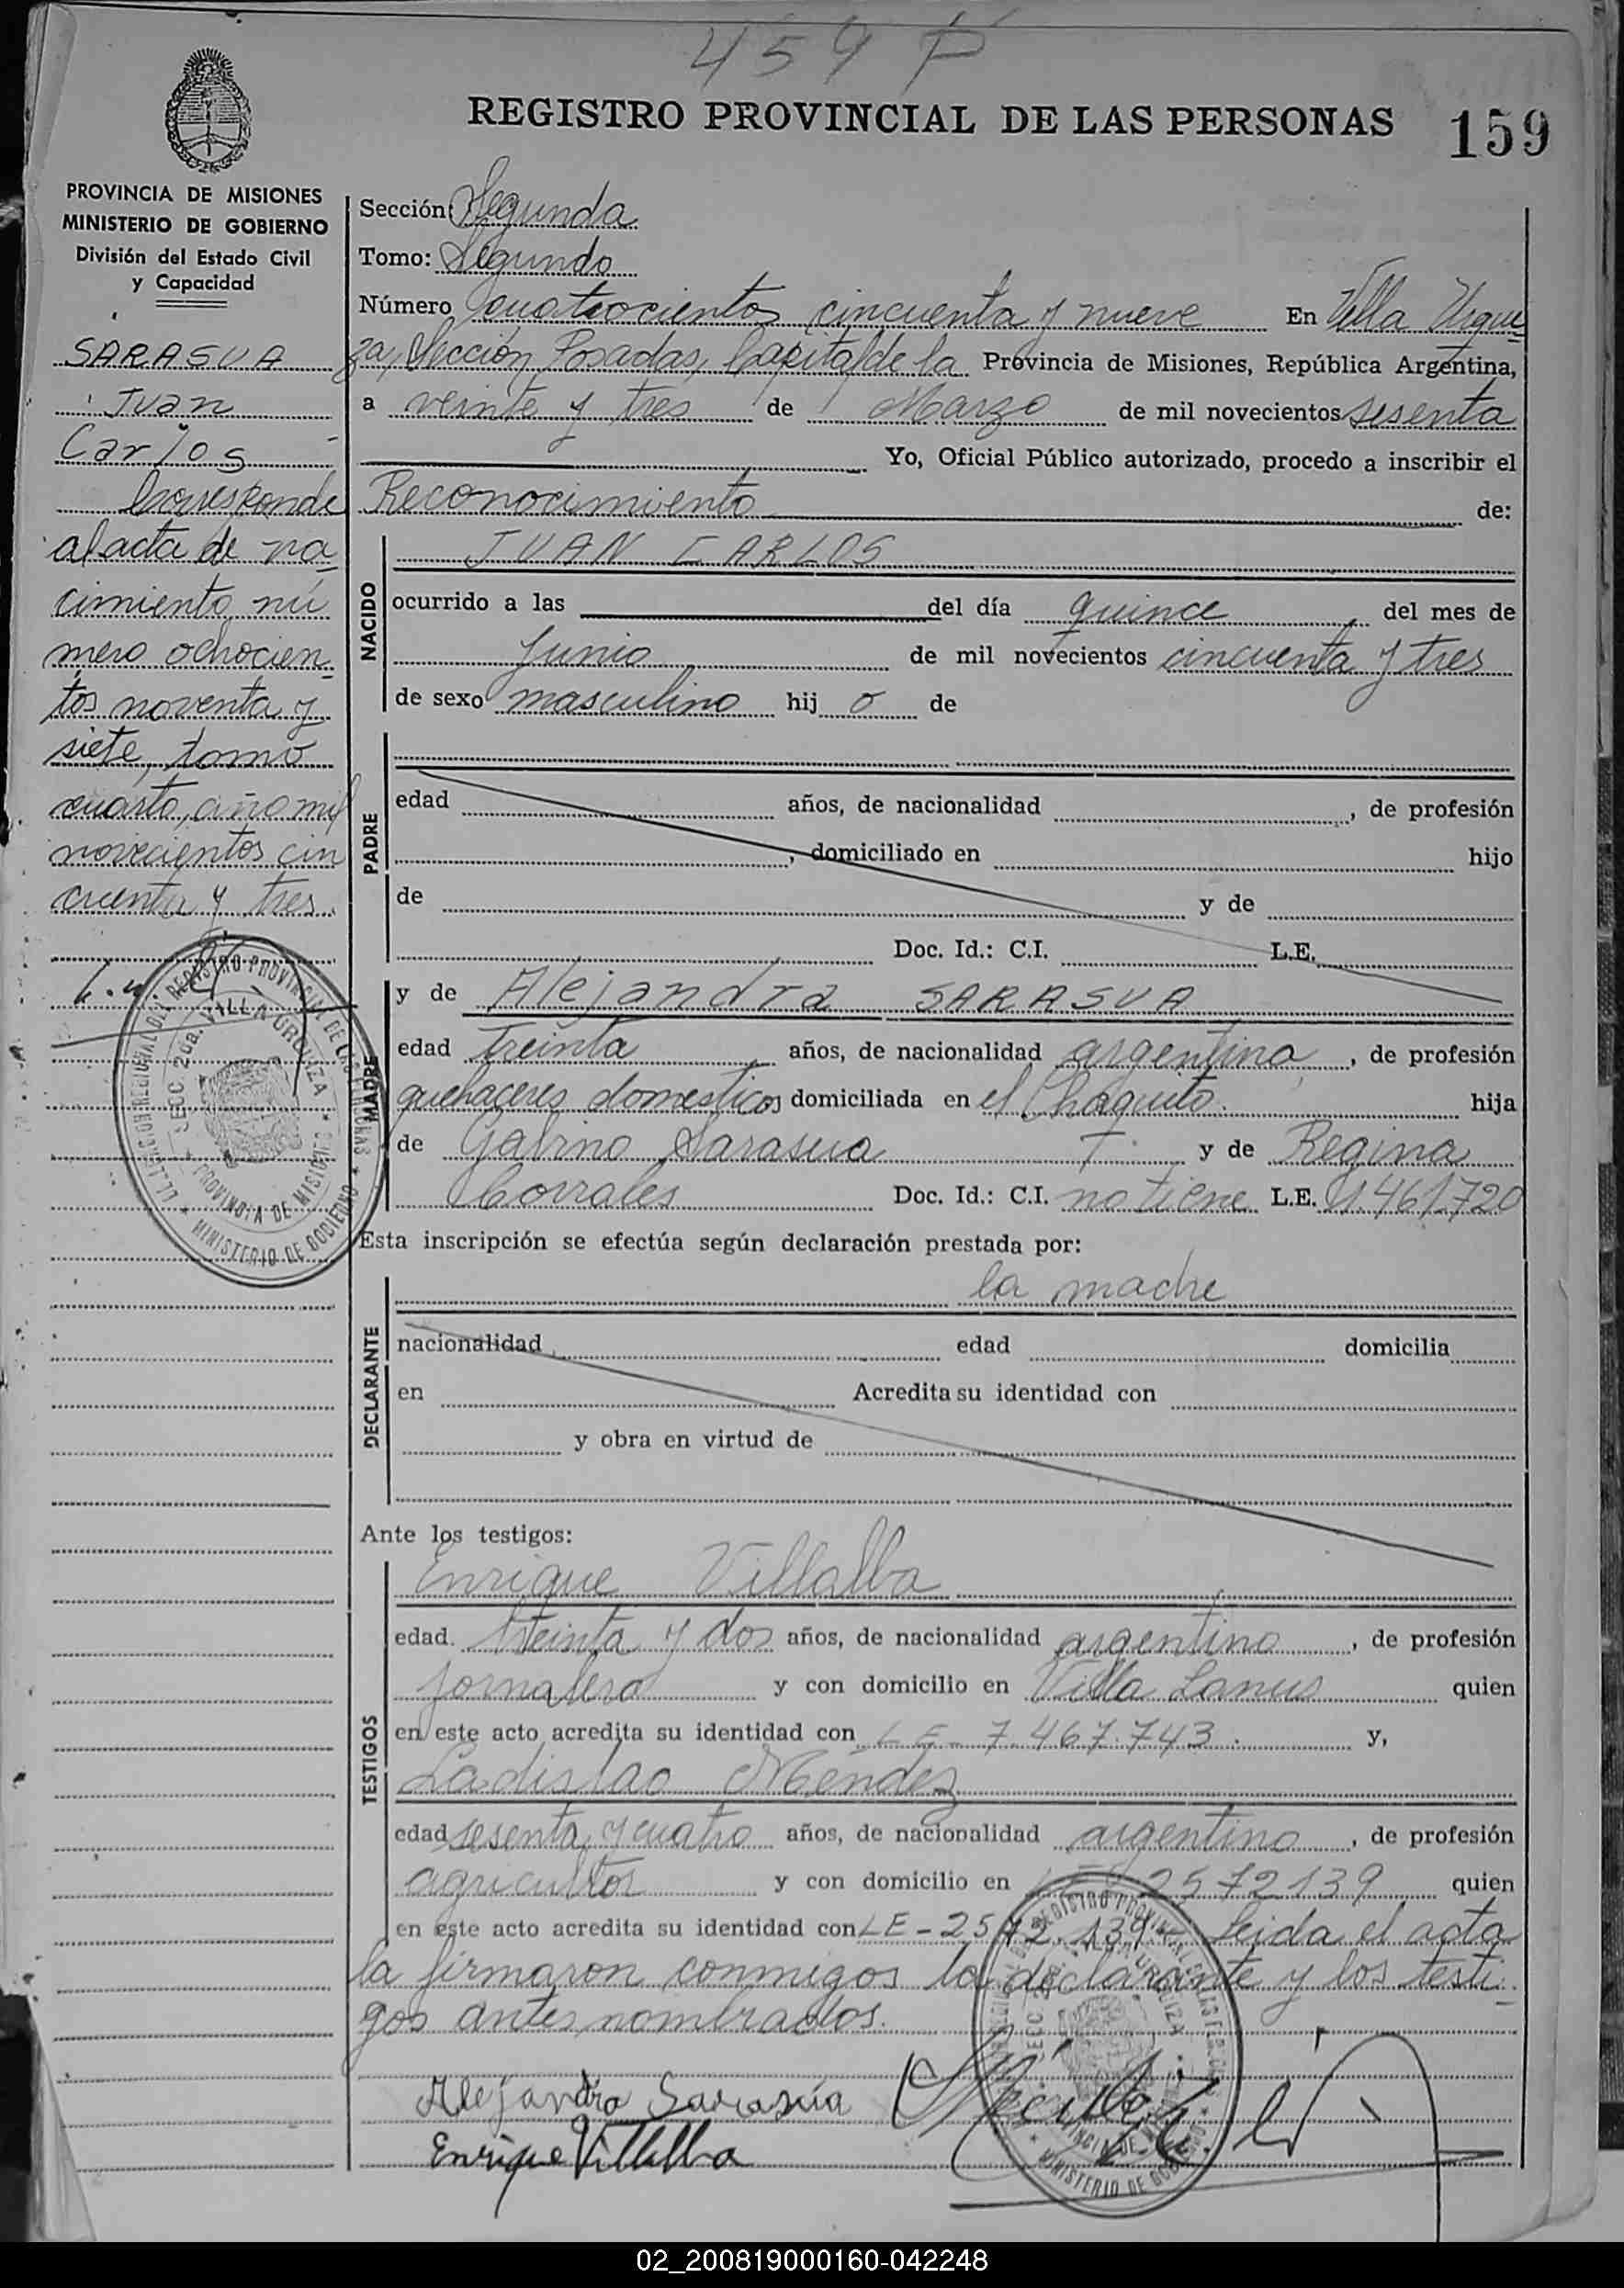 459 P
REGISTRO PROVINCIAL DE LAS PERSONAS 159
PROVINCIA DE MISIONES
MINISTERIO DE GOBIERNO
División del Estado Civil
y Capacidad
SARASUA
Juan
Carlos
Corresponde
al acta de na
cimiento nú
mero ochocien
tos noventa y
siete, tomo
cuarto, año mil
novecientos cin
cuenta y tres.
Sección: Segunda
Tomo: Segundo
Número cuatrocientos cincuenta y nueve En Villa Urqui
za, Sección Posadas, Capital de la Provincia de Misiones, República Argentina,
a veinte y tres de Marzo de mil novecientos sesenta
Yo, Oficial Público autorizado, procedo a inscribir el
Reconocimiento de:
NACIDO
JUAN CARLOS
ocurrido a las del día quince del mes de
Junio de mil novecientos cincuenta y tres
de sexo masculino hij o de
PADRE
edad años, de nacionalidad , de profesión
, domiciliado en hijo
de y de
Doc. Id.: C.I. L.E.
MADRE
y de Alejandra SARASUA
edad treinta años, de nacionalidad argentina, de profesión
quehaceres domesticos domiciliada en el Chaquito. hija
de Gabino Sarasua y de Regina
Corrales Doc. Id.: C.I. no tiene L.E. 1.461.720
Esta inscripción se efectúa según declaración prestada por:
DECLARANTE
la madre
nacionalidad edad domicilia
en Acredita su identidad con
y obra en virtud de
Ante los testigos:
TESTIGOS
Enrique Villalba
edad treinta y dos años, de nacionalidad argentino, de profesión
jornalero y con domicilio en Villa Lanus quien
en este acto acredita su identidad con LE- 7.467.743. y,
Ladislao Méndez
edad sesenta y cuatro años, de nacionalidad argentino, de profesión
agricultor y con domicilio en 2572139 quien
en este acto acredita su identidad con LE-2572.139. Leida el acta
la firmaron conmigos la declarante y los testi
gos antes nombrados.
Alejandra Sarasúa
Enrique Villalba
02_200819000160-042248